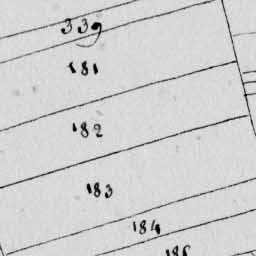 339
181
182
183
184
185